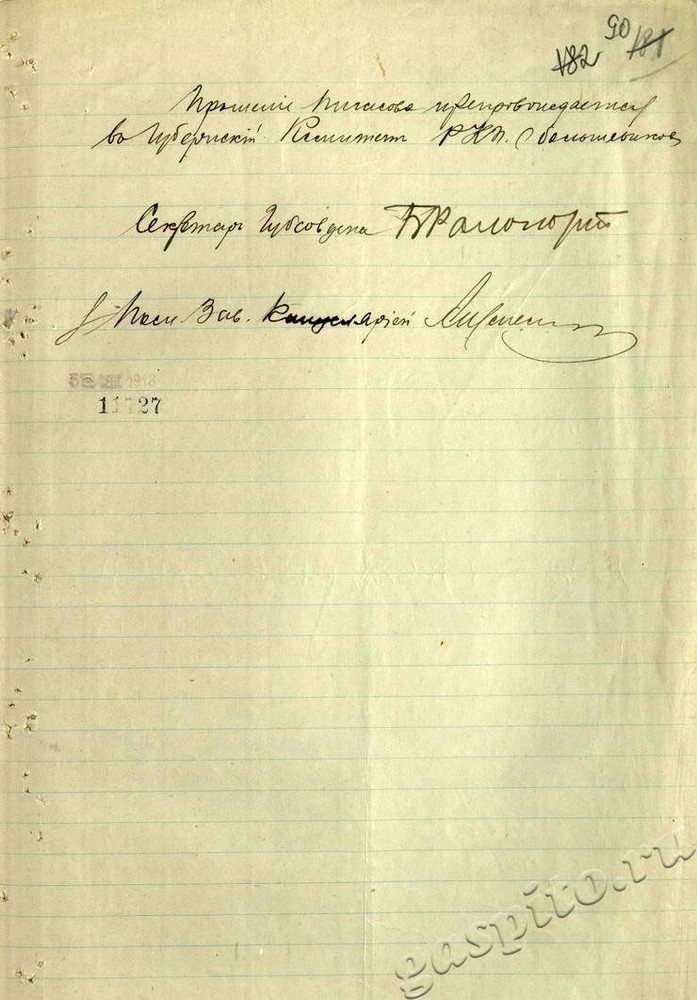 90
182 181
Прошенiе Пигасова препровождается
во Губернскiй Комитет РКП. большевиков
Секретарь Губсовдепа
Зав. Канцелярiей
1918
11727
gaspito.ru